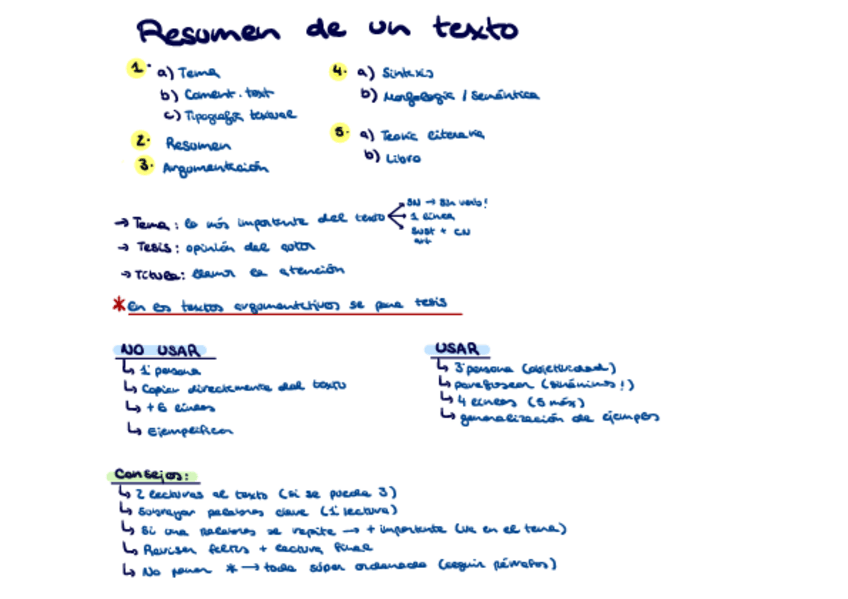 Resumen de un texto
1. a) Tema
b) Coment. text
c) Tipografía textual
2. Resumen
3. Argumentación
4. a) Sintaxis
b) Morfología / Semántica
5. a) Teoría literaria
b) Libro
→ Tema: lo más importante del texto
SN → sin verbo!
1 línea
Sust + CN
art
→ Tesis: opinión del autor
→ Título: llamar la atención
* En los textos argumentativos se pone tesis
NO USAR
↳ 1ª persona
↳ Copiar directamente del texto
↳ +6 líneas
↳ Ejemplificar
USAR
↳ 3ª persona (objetividad)
↳ parafrasear (sinónimos!)
↳ 4 líneas (5 máx)
↳ generalización de ejemplos
Consejos:
↳ 2 lecturas al texto (si se puede 3)
↳ Subrayar palabras clave (1ª lectura)
↳ Si una palabra se repite → + importante (va en el tema)
↳ Revisar faltas + lectura final
↳ No poner * → todo súper ordenado (seguir párrafos)